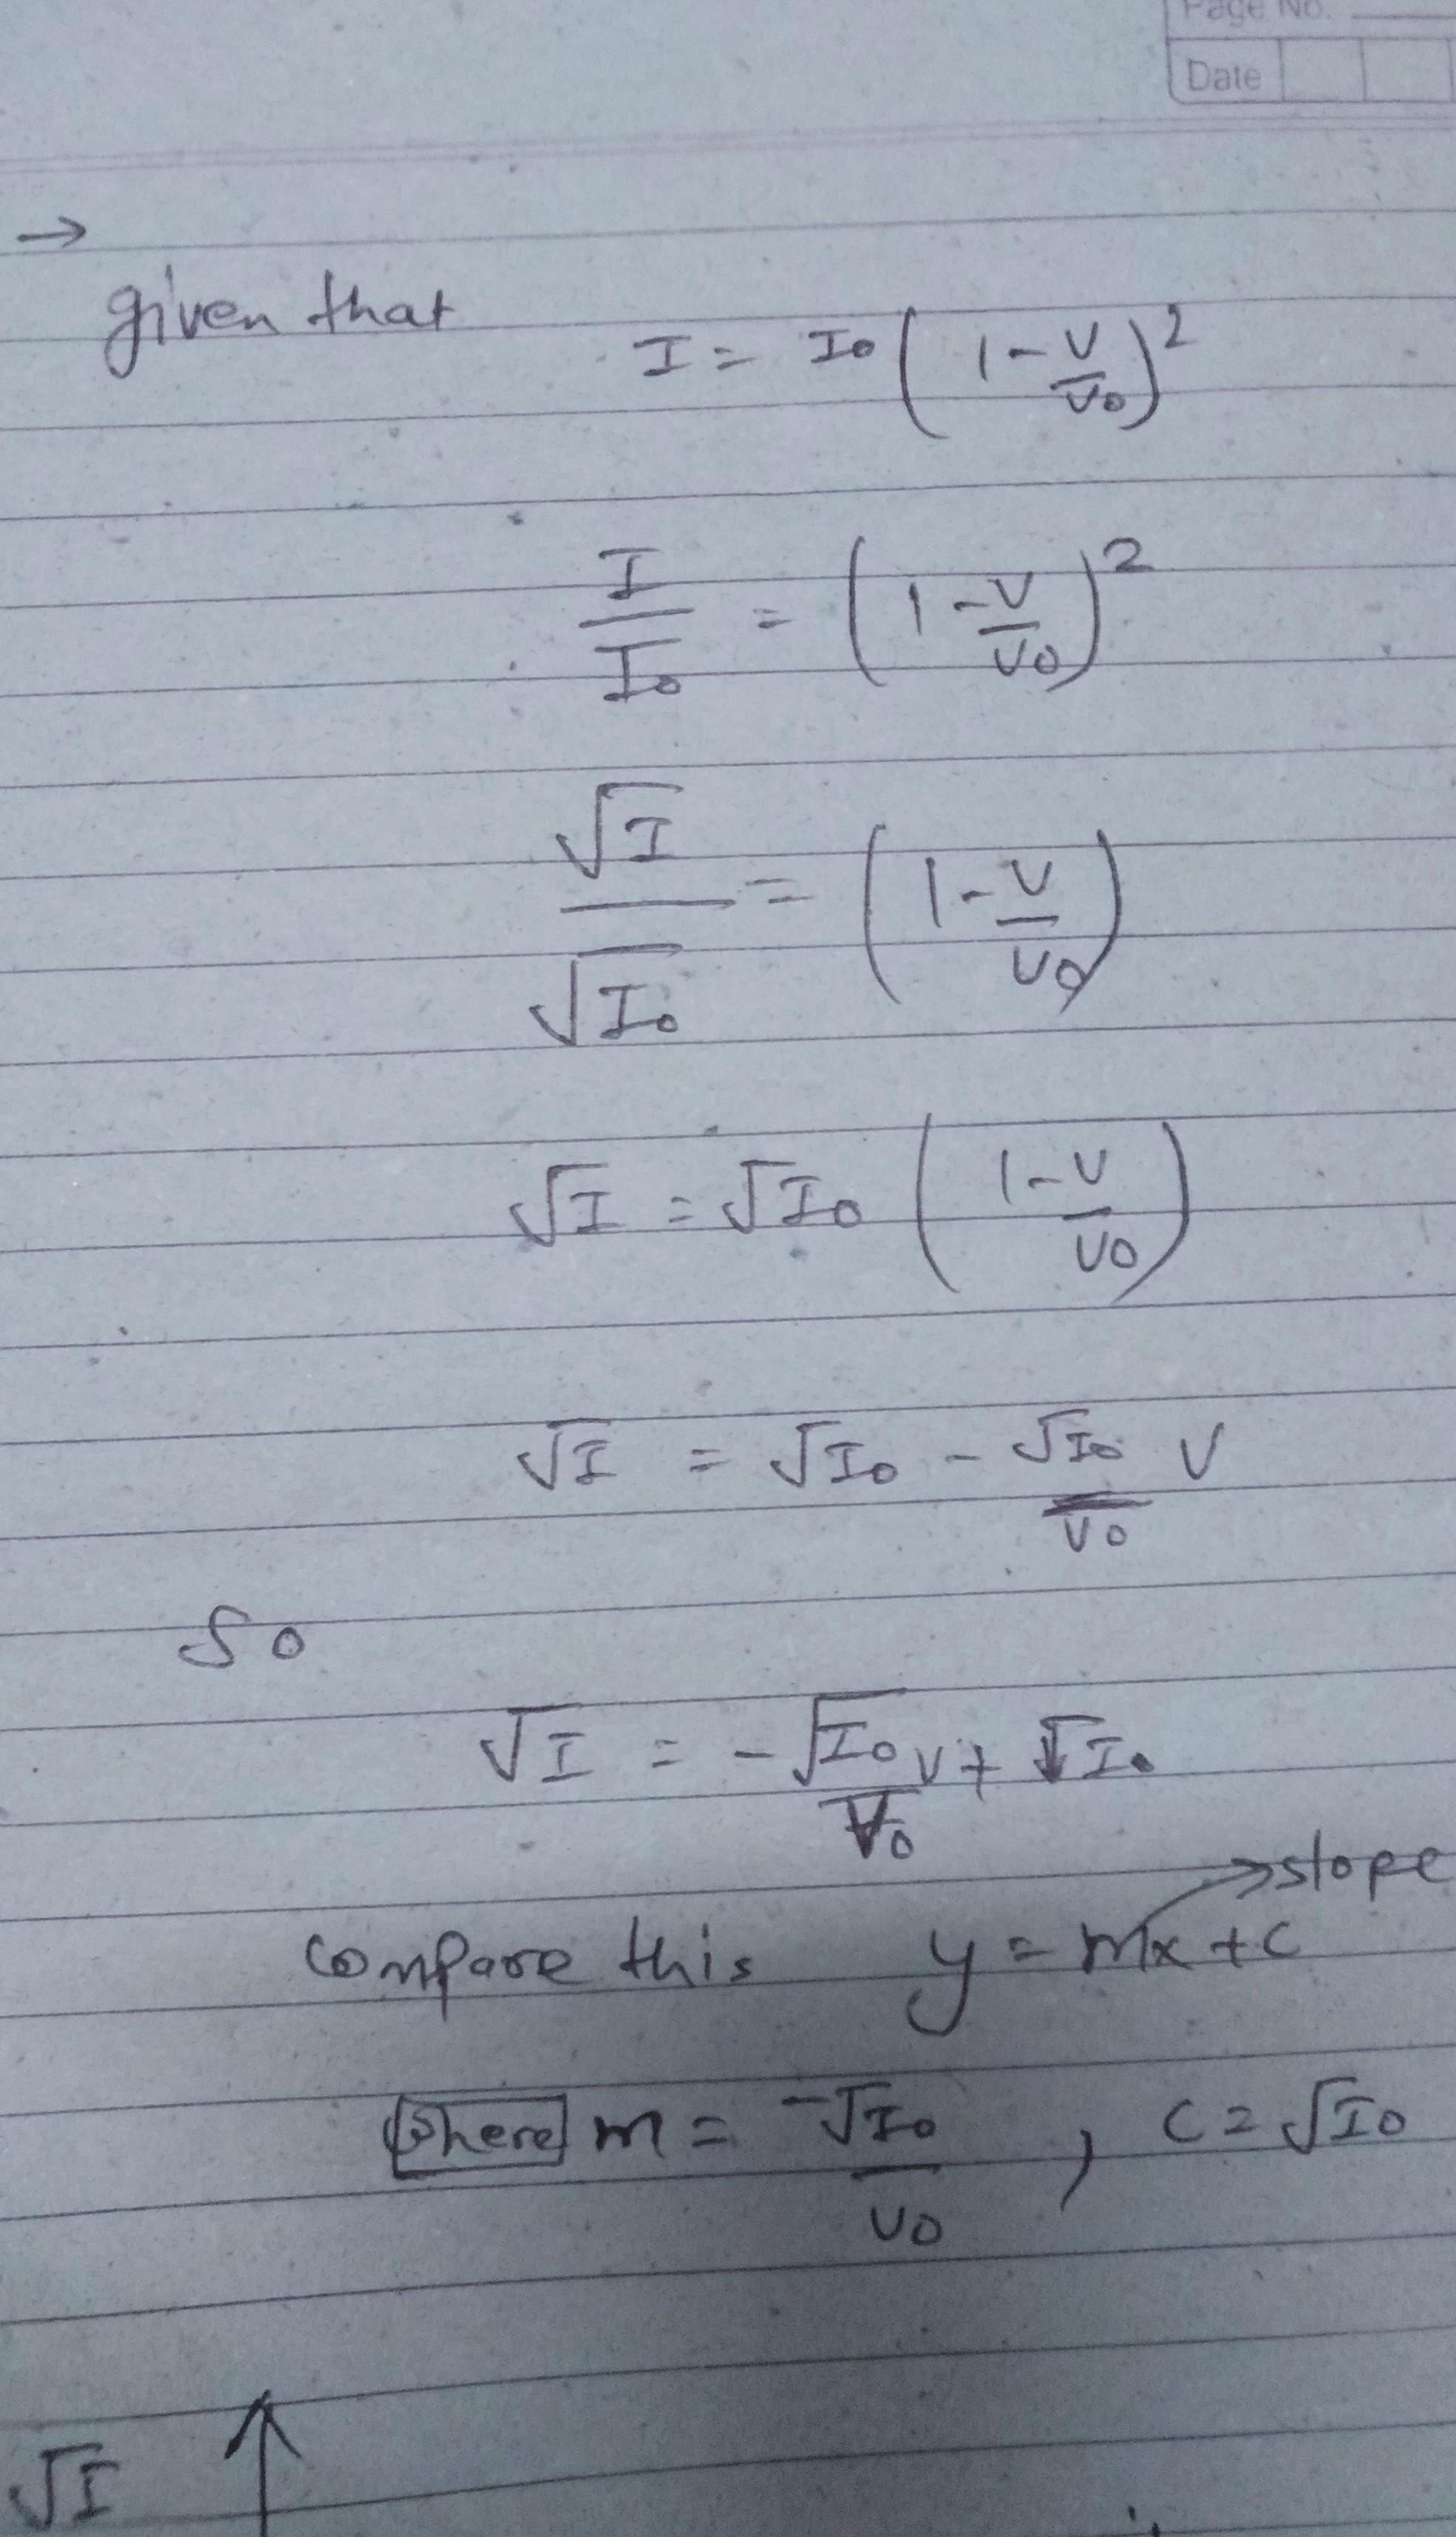 Page No.
Date
→
given that I = I₀ (1 - V/V₀)²
I/I₀ = (1 - V/V₀)²
√I/√I₀ = (1 - V/V₀)
√I = √I₀ (1 - V/V₀)
√I = √I₀ - √I₀/V₀ V
So
√I = - √I₀/V₀ V + √I₀
→ slope
compare this y = mx + c
where m = -√I₀/V₀ , c = √I₀
√I